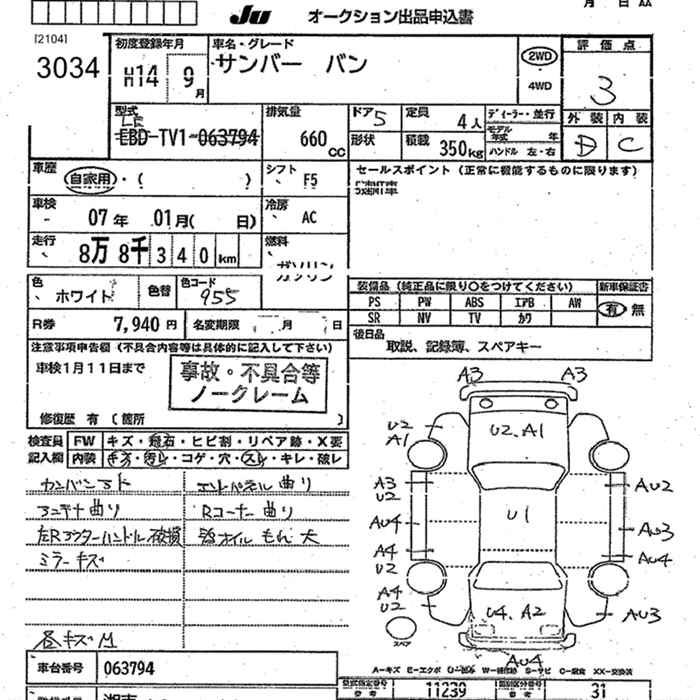 JU オークション出品申込書
[2104]
3034
初度登録年月
H14 9月
車名・グレード
サンバー バン
2WD
4WD
評価点
3
外装 内装
D C
型式
LE
EBD-TV1-063794
排気量
660cc
ドア 5
形状
定員 4人
積載 350kg
ディーラー・並行
モデル年式 年
ハンドル 左・右
車歴
自家用・( )
シフト F5
セールスポイント (正常に機能するものに限ります)
車検
07年 01月( 日)
冷房 AC
走行
8万8千340km
燃料
ガソリン
色
ホワイト
色替
色コード
955
装備品 (純正品に限り○をつけてください)
新車保証書
PS PW ABS エアB AW
SR NV TV カワ
有 無
R券 7,940円
名変期限 月 日
後日品
取説、記録簿、スペアキー
注意事項申告欄 (不具合内容等は具体的に記入して下さい)
車検1月11日まで
事故・不具合等
ノークレーム
修復歴 有 (箇所 )
検査員記入欄
FW キズ・飛石・ヒビ割・リペア跡・X要
内装 キズ・汚レ・コゲ・穴・スレ・キレ・破レ
カンバン3ド
アンテナ曲り
左Rアウターハンドル破損
ミラーキズ
エンドパネル曲り
Rコーナー曲り
オイルもれ大
各キズM
A3 A3
U2 A1
U2、A1
A3 U2
AU4
A4 U2
U1
AU2
AU3
AU4
A4 U2
U4、A2
AU3
AU4
スペア
A-キズ E-エクボ U-凹み W-補修跡 S-サビ C-腐食 XX-交換済
車台番号 063794
11239
31